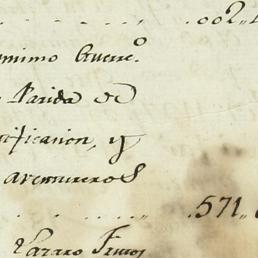 .002„
onimo Guerr.º
Parida de
ificacion, y
aventureros
.571„
Lazaro Frutos